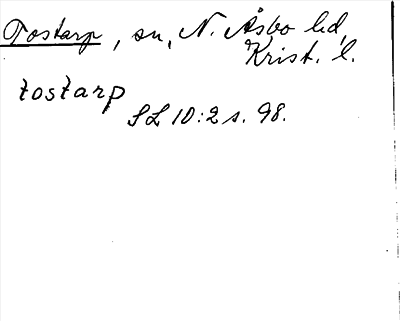 Tostarp, sn, N. Åsbo hd,
Krist. l.
tostarp
SL 10:2 s. 98.